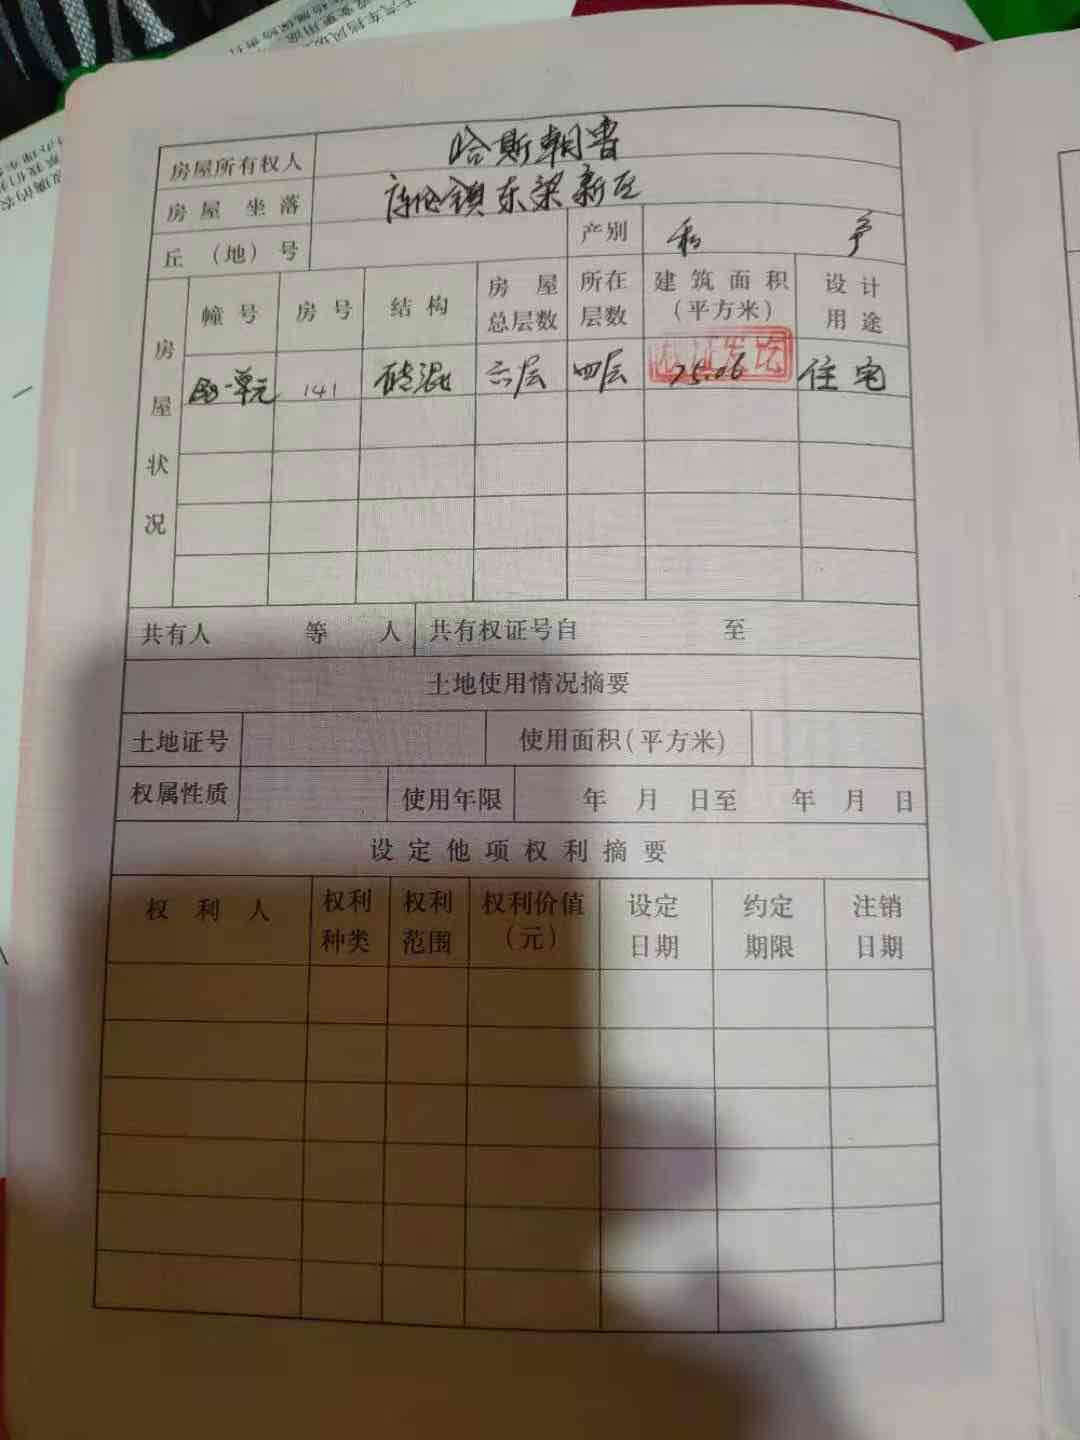 房屋所有权人 哈斯朝鲁
房屋坐落 库伦镇东梁新区
丘（地）号 产别 私产
房屋状况 幢号 房号 结构 房屋总层数 所在层数 建筑面积（平方米） 设计用途
一单元 141 砖混 六层 四层 75.06 住宅
共有人 等 人 共有权证号自 至
土地使用情况摘要
土地证号 使用面积(平方米)
权属性质 使用年限 年 月 日至 年 月 日
设定他项权利摘要
权利人 权利种类 权利范围 权利价值（元） 设定日期 约定期限 注销日期